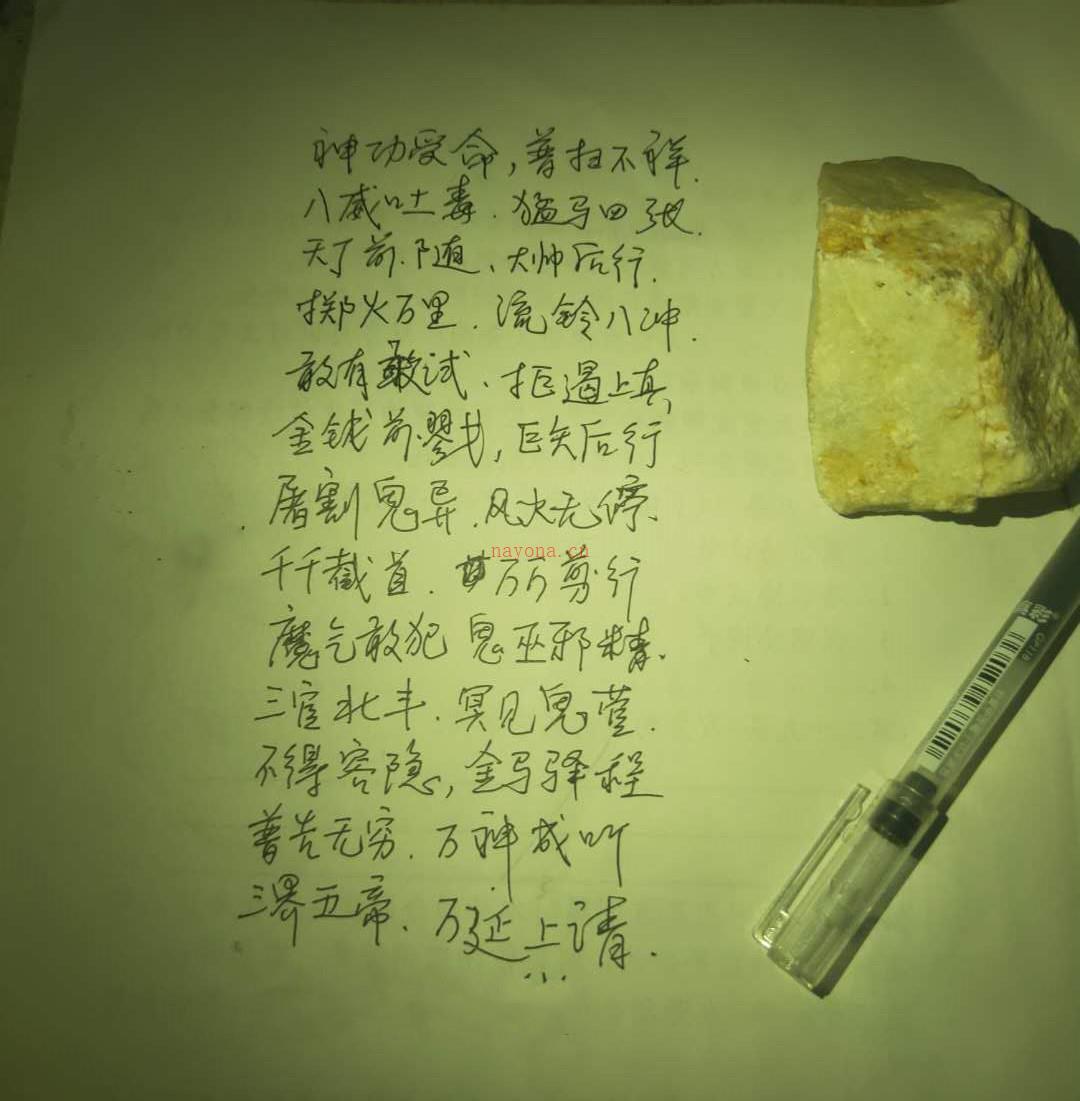 神功受命，普扫不祥.
八威吐毒.猛马四张.
天丁前.随、大帅后行.
掷火万里.流铃八冲.
敢有敢试、拒逼上真
金钺前.戮，巨矢后行
屠割鬼异.风火无停、
nayona.cn
千千截首.万万剪行
魔气敢犯 鬼巫邪精.
三官北丰.冥见鬼营.
不得容隐，金马驿程
普告无穷.万神咸听
三界五帝、万延上请.